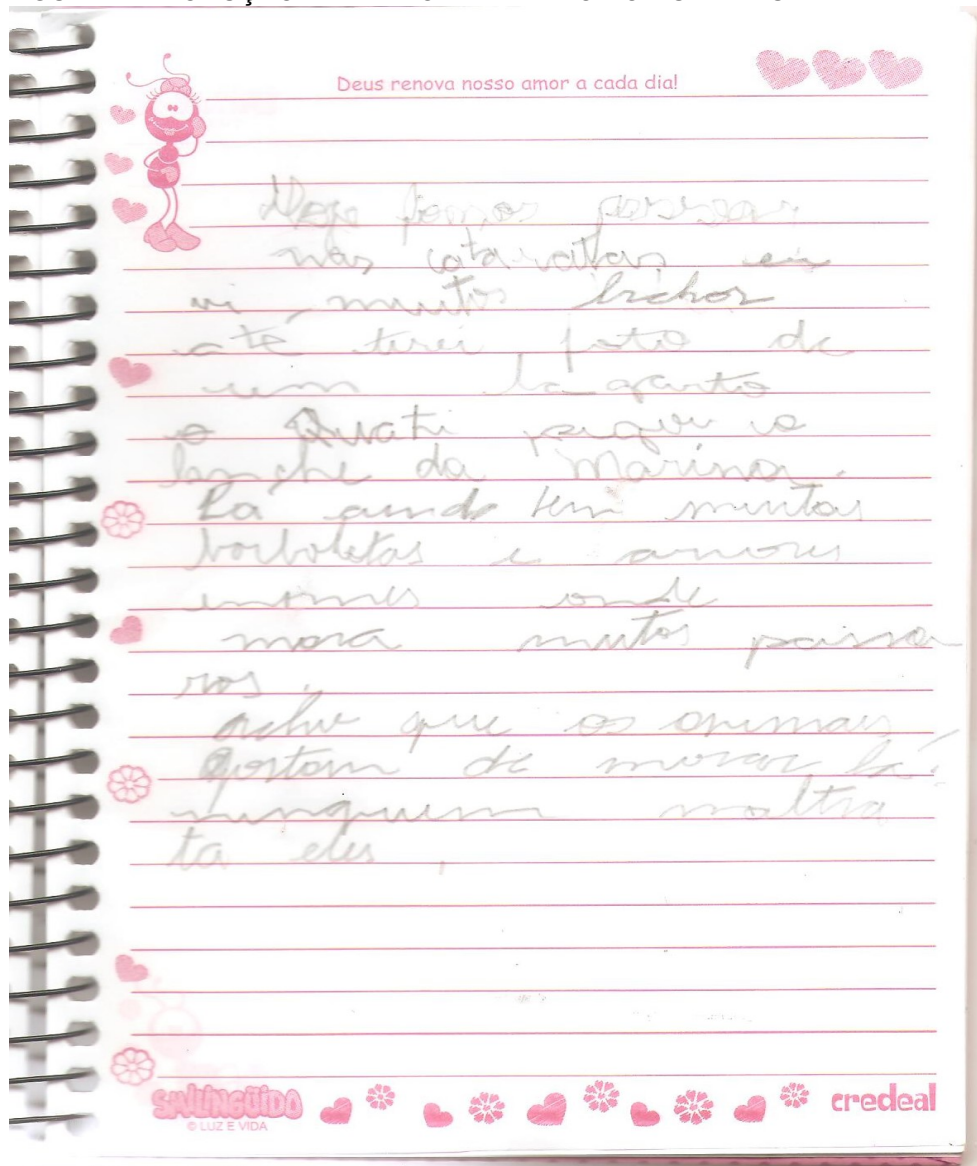 Deus renova nosso amor a cada dia!
Hoje fomos passear
nas cataratas eu
vi muitos bichos
até tirei foto de
um lagarto
o Quati pegou o
lanche da Marina.
La ainda tem muitas
borboletas e arvores
enormes onde
mora muitos passa
ros.
Acho que os animais
gostam de morar lá.
ninguem maltra
ta eles.
SMILINGÜIDO
© LUZ E VIDA
credeal